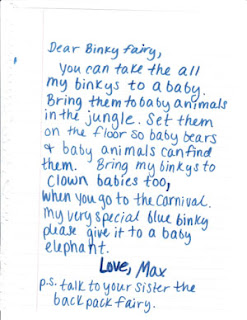 Dear Binky fairy,
you can take the all
my binkys to a baby.
Bring them to baby animals
in the jungle. Set them
on the floor so baby bears
& baby animals can find
them. Bring my binkys to
clown babies too,
when you go to the carnival.
My very special blue binky
please give it to a baby
elephant.
Love, Max
p.s. talk to your sister the
back pack fairy.